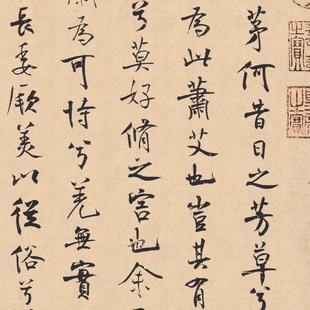 茅何昔日之芳草兮
為此蕭艾也豈其有
兮莫好脩之害也余
為可恃兮羌無實
長委厥美以從俗兮